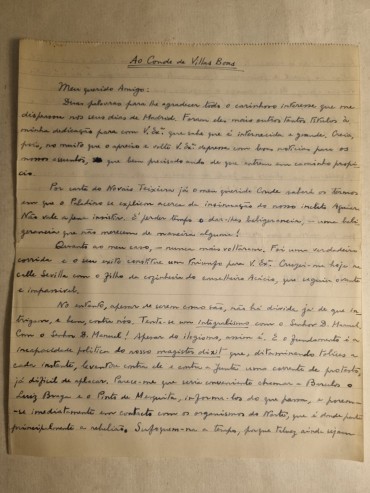 Ao Conde de Villas Boas
Meu querido Amigo:
Duas palavras para lhe agradecer todo o carinhoso interesse que me
dispensou nos seus dias de Madrid. Foram eles mais outros tantos titulos à
minha dedicação para com V. Exª. que sabe que é internecida e grande. Creia,
pois, no muito que o aprecio e cultivo
nossos assuntos, que bem precisados de que entrem em caminho propi-
cio.
Por carta do Novais Teixeira já o meu querido Conde saberá os termos
em que o Palestino se explicou acerca da insinuação do nosso inclito Aguiar.
Não vale a pena insistir. É perder tempo e dar-lhes beligerancia, - uma beli-
gerancia que não merecem de maneira alguma!
Quanto ao meu caso, - nunca mais voltaram. Foi uma verdadeira
corrida e o seu exito constitue um triunfo para V. Exª. Cruzei-me hoje na
calle Sevilla com o filho da cozinheira do conselheiro Acácio, que seguiu ovante
e impassivel.
No entanto, apesar de serem como são, não há duvida já de que in-
trigam, e bem, contra nós. Tenta-se um Integralismo com o Senhor D. Manuel.
Com o Senhor D. Manuel! Apesar de ilogismo, assim é. E o fundamento é a
incapacidade politica do nosso magister dixit que, disseminando tolices a
cada instante, levantou contra ele e contra a Junta uma corrente de protesto,
já dificil de aplacar. Parece-me que seria conveniente chamar a Barcelos o
Luiz Braga e o Pinto de Mesquita, informa-los do que passa, e porem-
-se imediatamente em contacto com os organismos do Norte, que é donde parte
principalmente a rebelião. Sufoquem-na a tempo, porque talvez ainda sejam